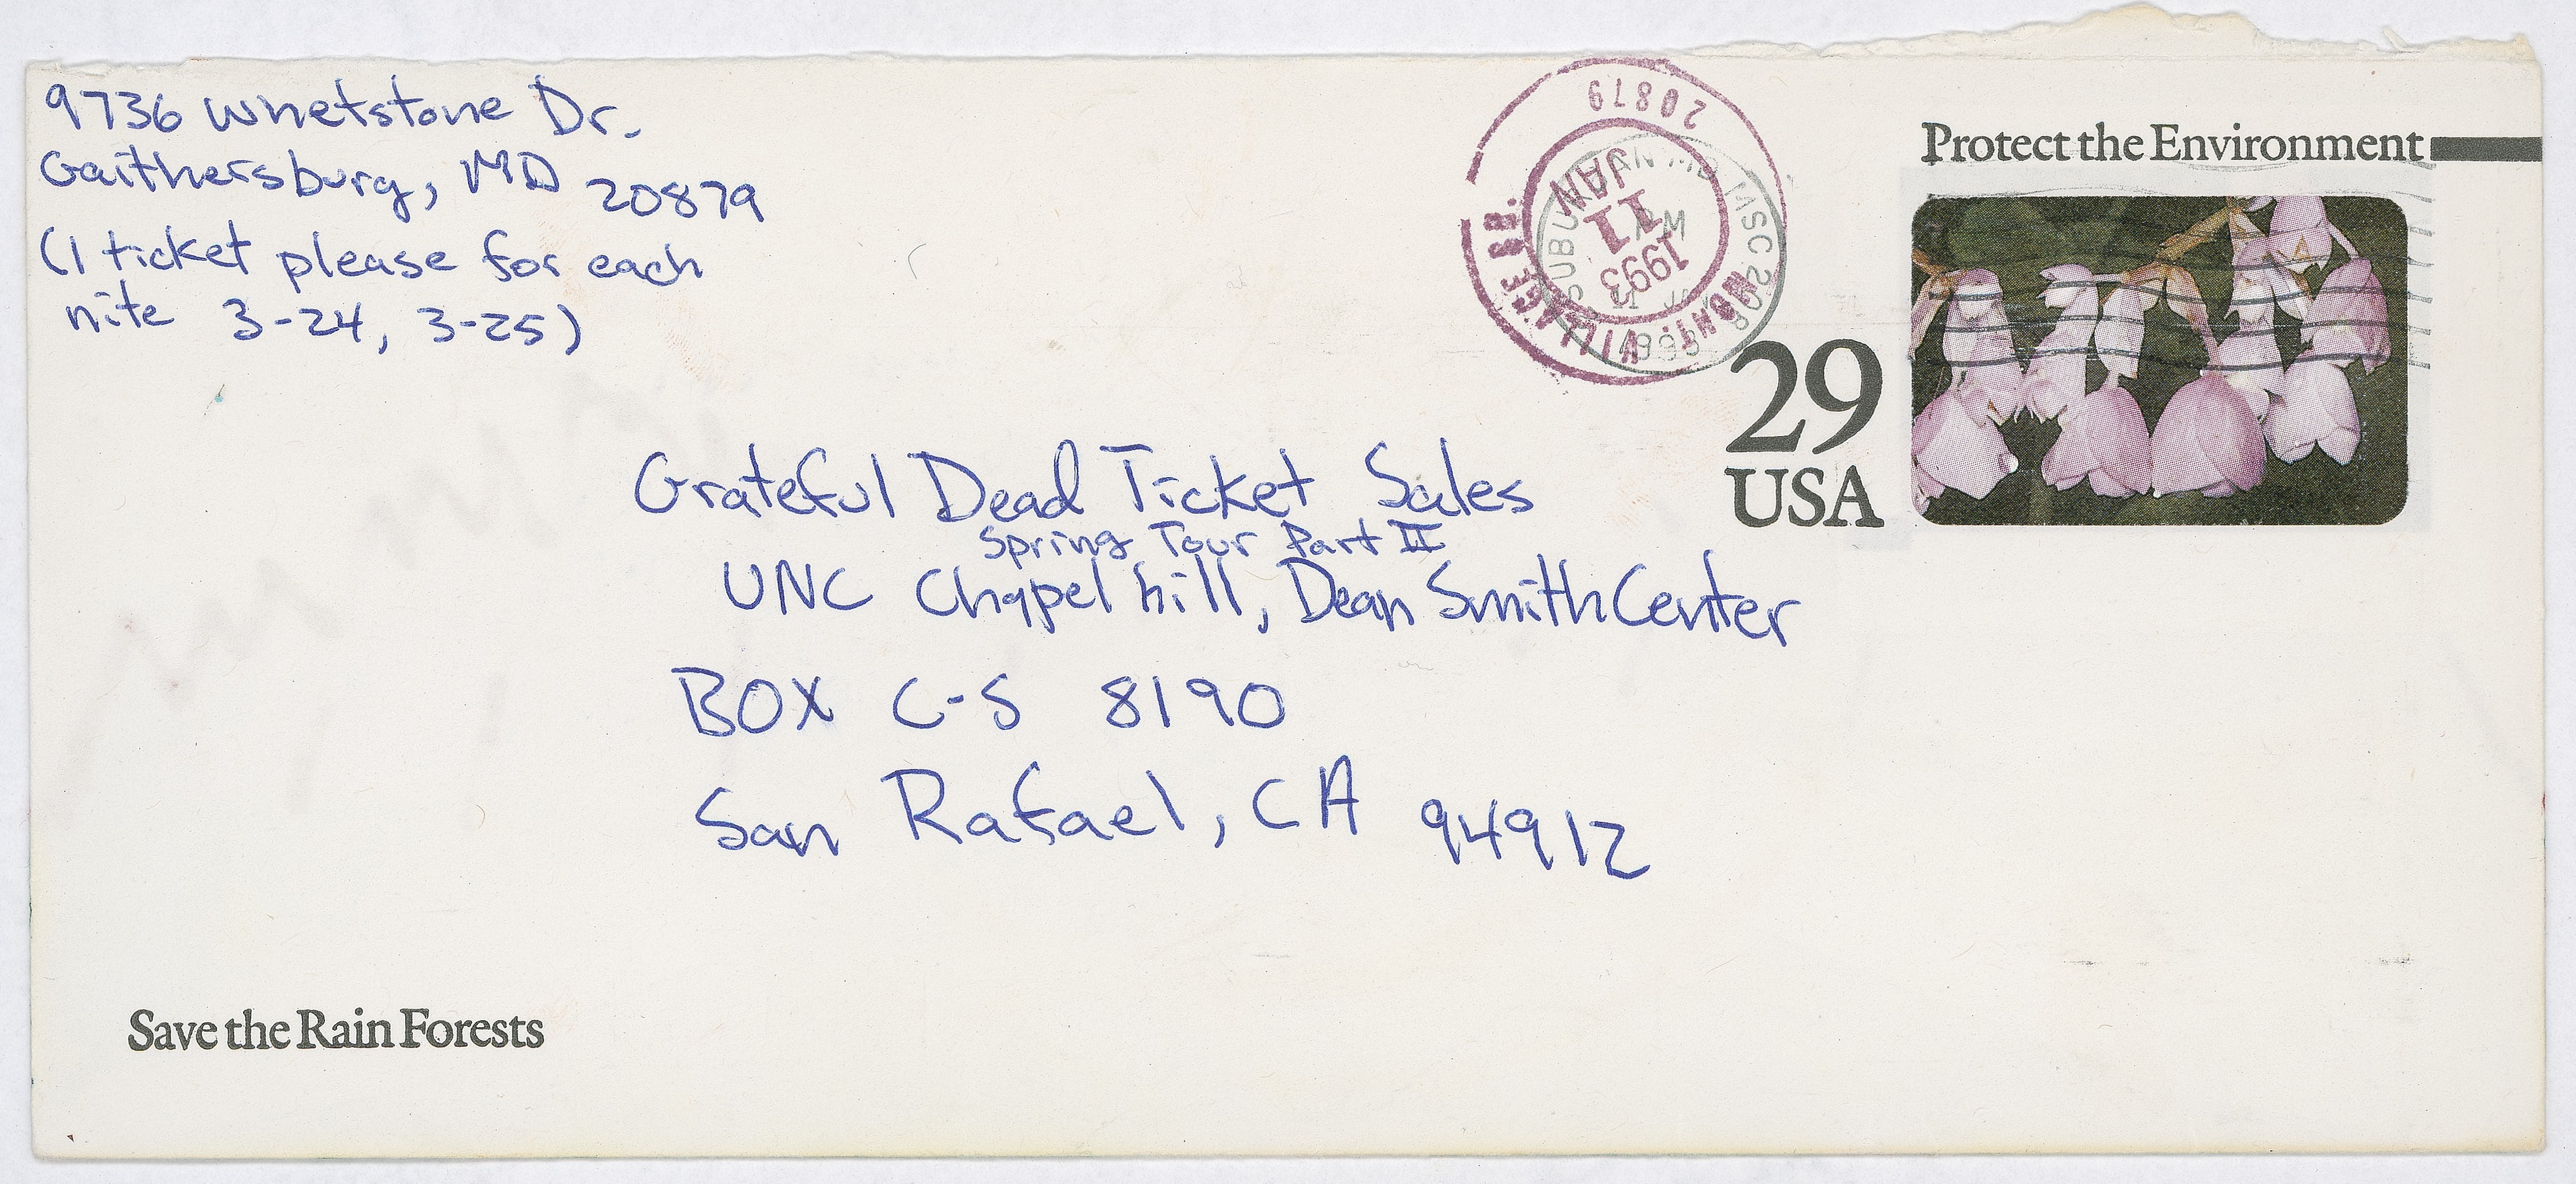 9736 Whetstone Dr.
Gaithersburg, MD 20879
(1 ticket please for each
nite 3-24, 3-25)
20879
JAN
11
1993
MONT. VILLAGE
SUBURBAN MD MSC 208
PM
11 JAN
1993
Protect the Environment
29
USA
Grateful Dead Ticket Sales
Spring Tour Part II
UNC Chapel hill, Dean Smith Center
BOX C-S 8190
San Rafael, CA 94912
Save the Rain Forests